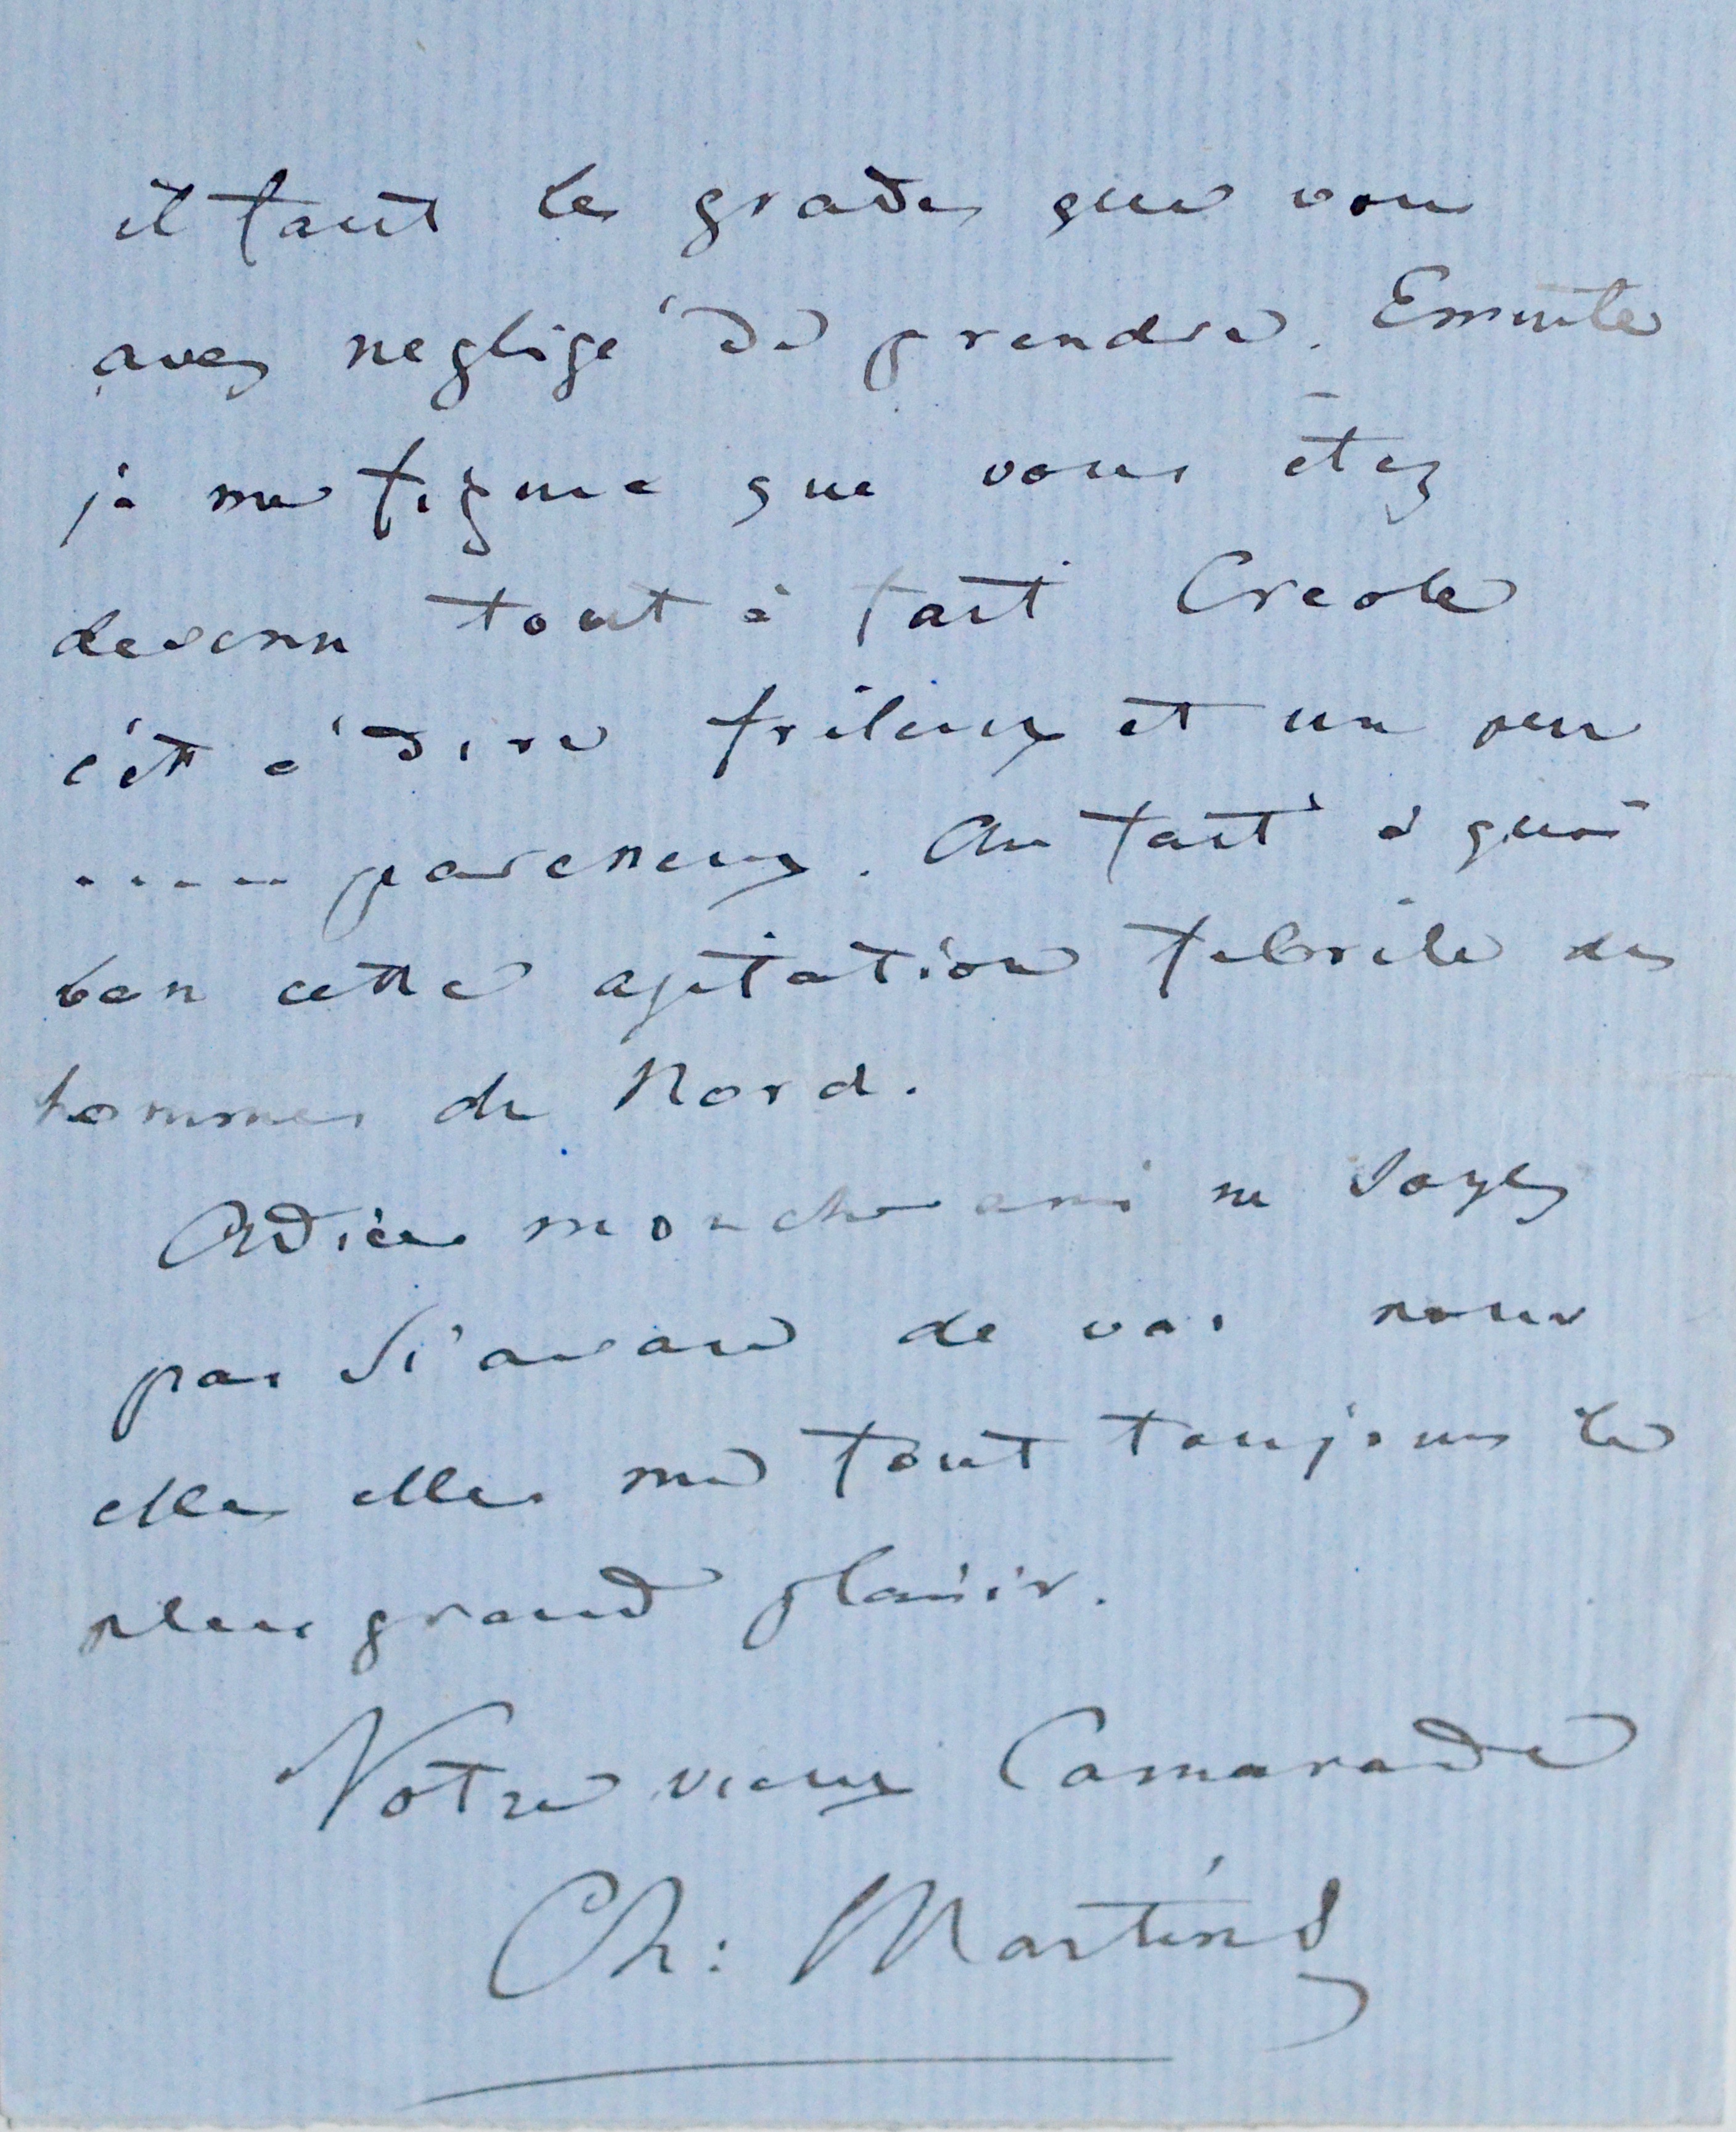 il faut les grades que vous
avez negligé de prendre. Ensuite
je me figure que vous étez
devenu tout à fait Creole
c'ést à dire frileux et un peu
..... paresseux. Au fait à quoi
bon cette agitation febrile des
hommes du Nord.
Adieu mon cher ami ne soyez
pas si avare de vos nouv
elles elles me font toujours le
plus grand plaisir.
Votre vieux Camarade
Ch: Martins